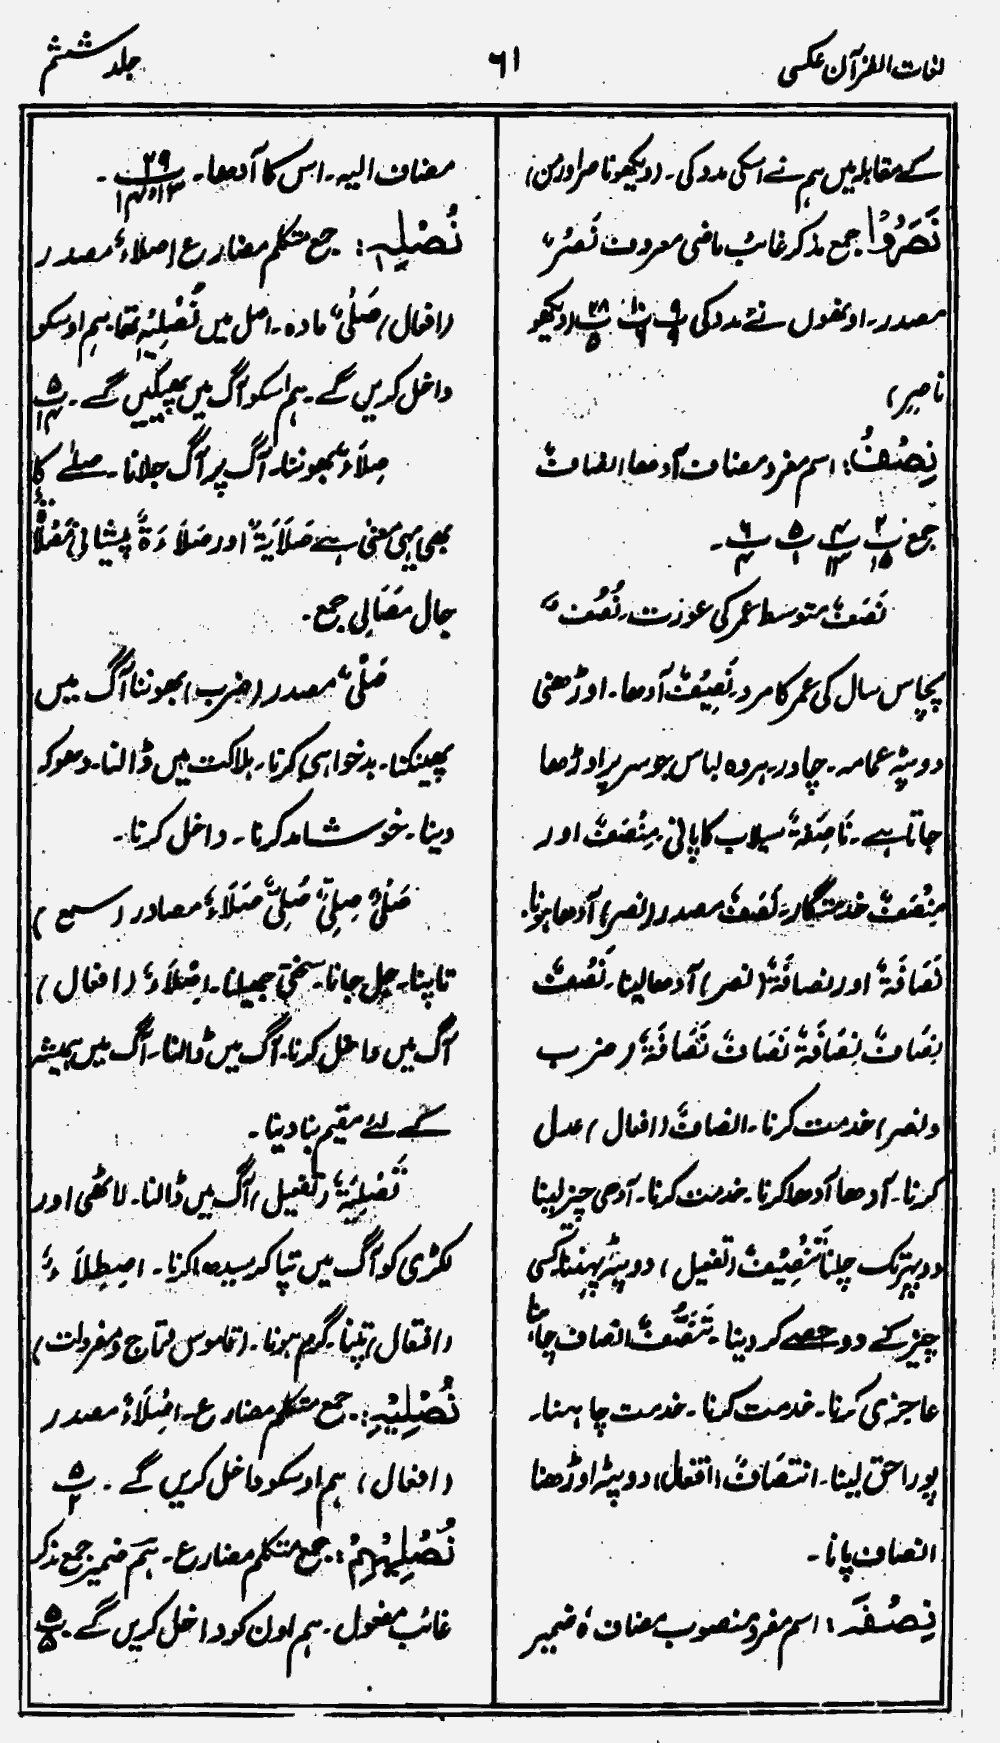 لغات القرآن عکسی
۶۱
جلد ششم
کے مقابلہ میں ہم نے اسکی مدد کی۔ (دیکھو ناصر اور من)
نَصَرُوْا جمع مذکر غائب ماضی معروف نَصْرٌ
مصدر۔ اونھوں نے مدد کی (دیکھو
ناصِر)
نِصْفُ: اسم مفرد مضاف آدھا انصافٌ
جمع پ ۲/۱۵ پ ۴/۱۳ پ ۵/۱ پ ۶/۴ ۔
نَصَفٌ متوسط عمر کی عورت۔ نُصُفٌ
پچاس سال کی عمر کا مرد۔ نَصِیْفٌ آدھا۔ اوڑھنی
دوپٹہ عمامہ۔ چادر۔ ہر وہ لباس جو سر پر اوڑھا
جاتا ہے۔ نَاصِفَۃٌ سیلاب کا پانی۔ مِنْصَفٌ اور
مِنْصَفٌ خدمتگار۔ نَصْفٌ مصدر (نصر) آدھا ہونا۔
نَصَافَۃٌ اور نصافَۃٌ (نصر) آدھا لینا۔ نَصْفٌ
نِصَافٌ نِصَافَۃٌ نَصَافٌ نَصَافَۃٌ (ضرب
ونصر) خدمت کرنا۔ انصافٌ (افعال) عدل
کرنا۔ آدھا آدھا کرنا۔ خدمت کرنا۔ آدھی چیز لینا
دوپہر تک چلنا تَنْصِیْفٌ (تفعیل) دوپٹہ پہننا کسی
چیز کے دو حصے کر دینا۔ تَنَصُّفٌ انصاف چاہنا
عاجزی کرنا۔ خدمت کرنا۔ خدمت چاہنا۔
پورا حق لینا۔ انتصَافٌ (افتعال) دوپٹہ اوڑھنا
انصاف پانا۔
نِصْفَہٗ: اسم مفرد منصوب مضاف ہٗ ضمیر
مضاف الیہ۔ اس کا آدھا۔ پ ۲۹/۱۳ و ۱۴ ۔
نُصْلِہٖ: جمع متکلم مضارع اصلاءٌ مصدر
(افعال) صَلْیٌ مادہ۔ اصل میں نُصْلِیْہِ تھا۔ ہم اوسکو
داخل کریں گے۔ ہم اسکو آگ میں پھینکیں گے۔ پ ۵/۱۴
صِلَاءٌ بھوننا۔ آگ پر آگ جلانا۔ صلےٰ کا
بھی یہی معنیٰ ہے صَلَایَۃٌ اور صَلَاءَۃٌ پیشانی
جال مَصَالِی جمع۔
صَلْیٌ مصدر (ضرب) بھوننا آگ میں
پھینکنا۔ بدخواہی کرنا۔ ہلاکت میں ڈالنا۔ دھوکہ
دینا۔ خوشامد کرنا۔ داخل کرنا۔
صَلْیٌ صِلِیٌّ صُلِیٌّ صَلَاءٌ مصادر (سمع)
تاپنا۔ جل جانا۔ سختی جھیلنا۔ اِصْلَاءٌ (افعال)
آگ میں داخل کرنا۔ آگ میں ڈالنا۔ آگ میں ہمیشہ
کے لئے مقیم بنا دینا۔
تَصْلِیَۃٌ (تفعیل) آگ میں ڈالنا۔ لاٹھی اور
لکڑی کو آگ میں تپا کر سیدھا کرنا۔ اِصطِلَاءٌ
(افتعال) تپنا۔ گرم ہونا۔ (قاموس تاج و مفردات)
نُصْلِیْہِ: جمع متکلم مضارع۔ اِصْلَاءٌ مصدر
(افعال) ہم اوسکو داخل کریں گے۔ پ ۵/۲
نُصْلِیْہِمْ: جمع متکلم مضارع۔ ہُمْ ضمیر جمع مذکر
غائب مفعول۔ ہم اون کو داخل کریں گے۔ پ ۵/۵